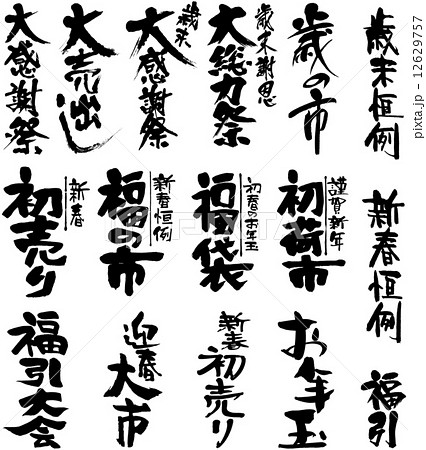 歳末恒例
歳の市
歳末謝恩
大総力祭
歳末
大感謝祭
大売出し
大感謝祭
新春恒例
謹賀新年
初荷市
初春のお年玉
福袋
新春恒例
福の市
新春
初売り
福引
お年玉
新春
初売り
迎春
大市
福引大会
PIXTA
pixta.jp - 12629757